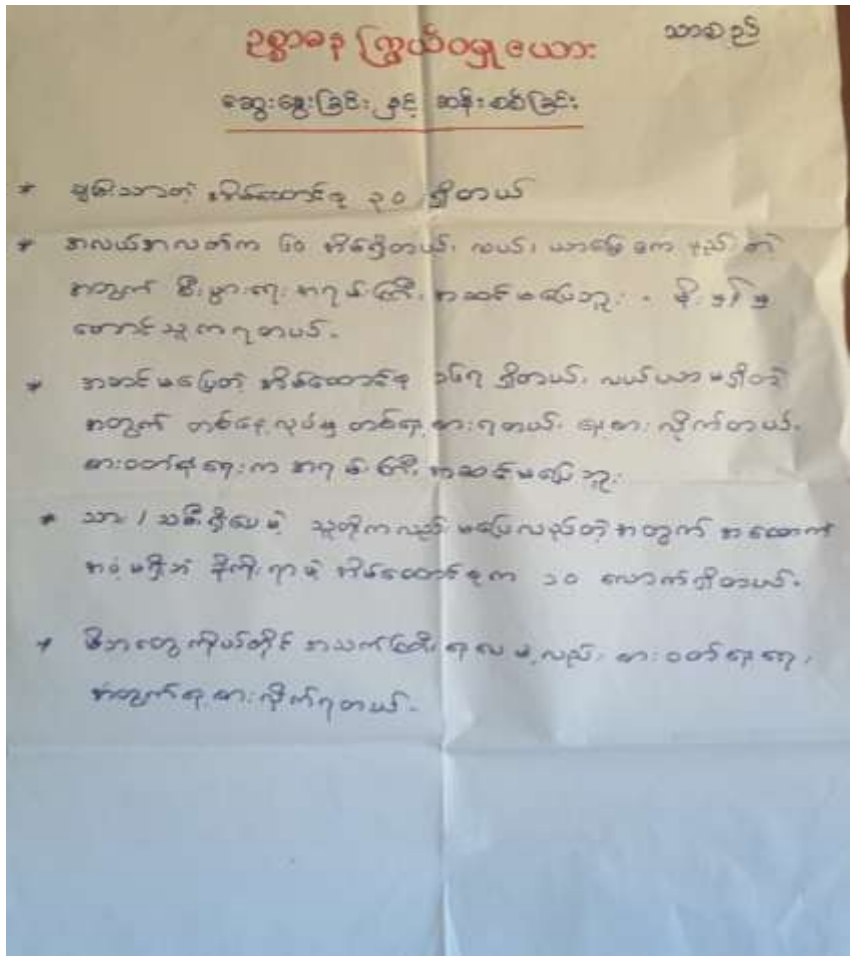 ဥစ္စာဓန ကြွယ်ဝမှု ဇယား
သာစည်
ဆွေးနွေးခြင်း နှင့် ဆန်းစစ်ခြင်း
* ချမ်းသာတဲ့ အိမ်ထောင်စု ၃၀ ရှိတယ်
* အလယ်အလတ်က ၆၀ အိမ်ရှိတယ်၊ လယ်၊ ယာမြေ နည်းတဲ့
အတွက် စီးပွားရေး အရမ်းကြီး အဆင်မပြေဘူး။
တောင်သူကရတယ်။
* အဆင်မပြေတဲ့ အိမ်ထောင်စု ၁၆၇ ရှိတယ်၊ လယ်ယာမရှိတဲ့
အတွက် တစ်နေ့လုပ်မှ တစ်နေ့စားရတယ်၊ နေ့စား လိုက်တယ်။
စားဝတ်နေရေးက အရမ်းကြီး အဆင်မပြေဘူး
* သား / သမီးရှိပေမဲ့ သူတို့ကလည်း မပြေလည်တဲ့အတွက် အထောက်
အပံ့မရှိဘဲ မှီခိုရာမဲ့ အိမ်ထောင်စုက ၁၀ လောက်ရှိတယ်။
* မိဘတွေကိုယ်တိုင် အသက်ကြီးရလမဲ့လည်း စားဝတ်နေရေး
အတွက် နေ့စားလိုက်ရတယ်။